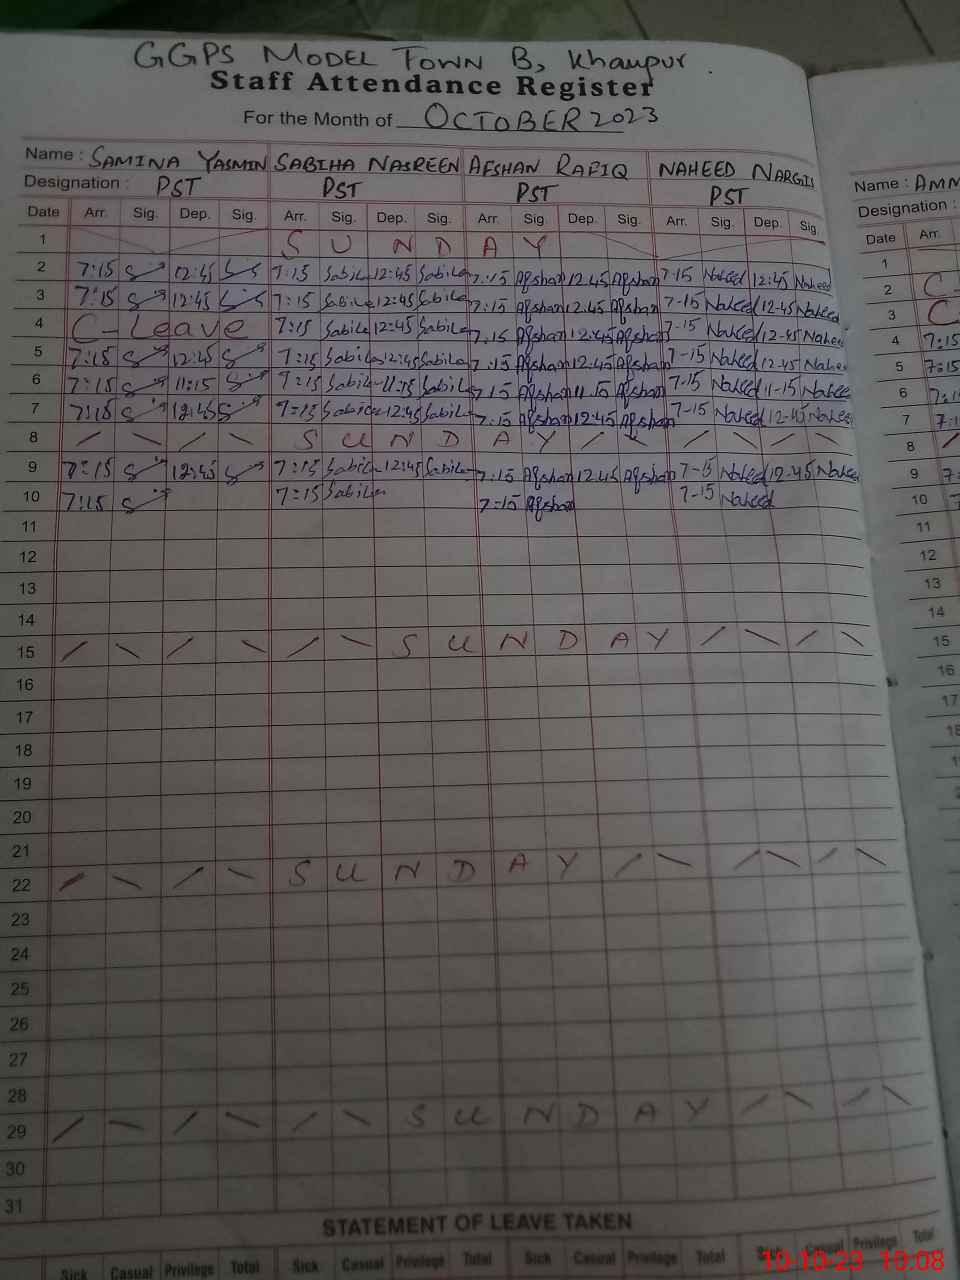 GGPS MODEL TOWN B, Khanpur.
Staff Attendance Register
For the Month of OCTOBER 2023
Name : SAMINA YASMIN SABIHA NASREEN AFSHAN RAFIQ NAHEED NARGIS
Designation : PST PST PST PST
Date Arr. Sig. Dep. Sig. Arr. Sig. Dep. Sig. Arr. Sig. Dep. Sig. Arr. Sig. Dep. Sig.
1 SUNDAY
2 7:15 12:45 7:15 12:45 7:15 Afshan 12.45 Afshan 7-15 Naheed 12:45 Naheed
3 7:15 12:45 7:15 12:45 7:15 Afshan 12.45 Afshan 7-15 Naheed 12-45 Naheed
4 C-Leave 7:15 12:45 7.15 Afshan 12:45 Afshan 7-15 Naheed 12-45 Naheed
5 7:15 12:45 7:15 12:45 7:15 Afshan 12.45 Afshan 7-15 Naheed 12.45 Naheed
6 7:15 11:15 7:15 11:15 7.15 Afshan 11.15 Afshan 7-15 Naheed 11-15 Naheed
7 7:15 12:45 7:15 12:45 7:15 Afshan 12:45 Afshan 7-15 Naheed 12-45 Naheed
8 SUNDAY
9 7:15 12:45 7:15 12:45 7:15 Afshan 12.45 Afshan 7-15 Naheed 12-45 Naheed
10 7:15 7:15 7:15 Afshan 7-15 Naheed
11
12
13
14
15 SUNDAY
16
17
18
19
20
21
22 SUNDAY
23
24
25
26
27
28
29 SUNDAY
30
31
STATEMENT OF LEAVE TAKEN
Sick Casual Privilege Total Sick Casual Privilege Total Sick Casual Privilege Total
Name : AMM
Designation :
Date Arr.
1
2 C-
3 C
4 7:15
5 7:15
6
7
8
9
10
11
12
13
14
15
16
17
18
10-10-23 10:08